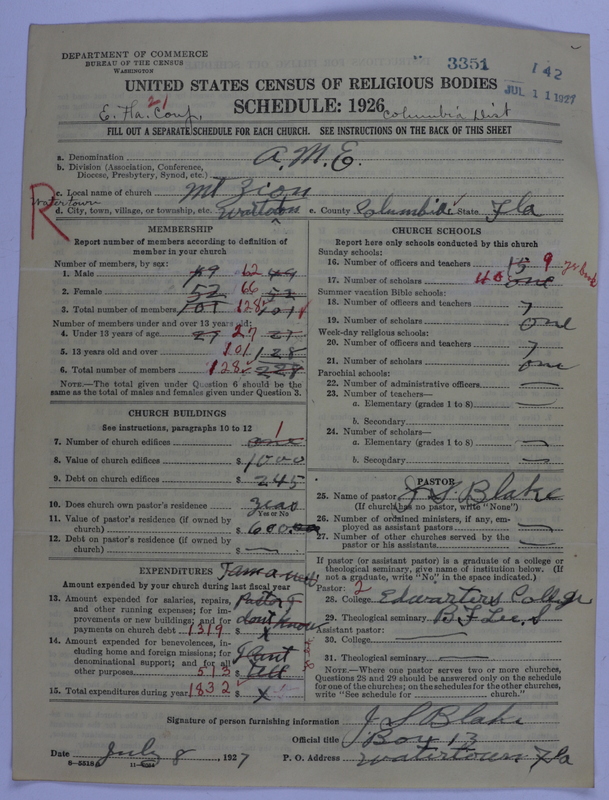 DEPARTMENT OF COMMERCE
BUREAU OF THE CENSUS
WASHINGTON
3351
142
JUL 11 1927
UNITED STATES CENSUS OF RELIGIOUS BODIES
SCHEDULE: 1926
E. Fla. Conf. 21
Columbia Dist
FILL OUT A SEPARATE SCHEDULE FOR EACH CHURCH. SEE INSTRUCTIONS ON THE BACK OF THIS SHEET
a. Denomination A.M.E.
b. Division (Association, Conference, Diocese, Presbytery, Synod, etc.)
c. Local name of church Mt Zion
R
Watertown
d. City, town, village, or township, etc. e. County Columbia State Fla
MEMBERSHIP
Report number of members according to definition of
member in your church
Number of members, by sex:
1. Male 49 62 49
2. Female 52 66 52
3. Total number of members 101 128 101
Number of members under and over 13 years old:
4. Under 13 years of age 27 27 27
5. 13 years old and over 101 128
6. Total number of members 128 228
NOTE.—The total given under Question 6 should be the
same as the total of males and females given under Question 3.
CHURCH BUILDINGS
See instructions, paragraphs 10 to 12
7. Number of church edifices one 1
8. Value of church edifices $ 1000
9. Debt on church edifices $ 245
10. Does church own pastor's residence
Yes or No
11. Value of pastor's residence (if owned by
church) $ 600.00
12. Debt on pastor's residence (if owned by
church) $ —
EXPENDITURES
Amount expended by your church during last fiscal year
13. Amount expended for salaries, repairs,
and other running expenses; for im-
provements or new buildings; and for
payments on church debt 1319 $ x
Pastor I
dont know
14. Amount expended for benevolences, in-
cluding home and foreign missions; for
denominational support; and for all
other purposes 513 $
I cant
tell
15. Total expenditures during year 1832 $ x
CHURCH SCHOOLS
Report here only schools conducted by this church
Sunday schools:
16. Number of officers and teachers 15 9
17. Number of scholars 40 one
Summer vacation Bible schools:
18. Number of officers and teachers 7
19. Number of scholars one
Week-day religious schools:
20. Number of officers and teachers 7
21. Number of scholars one
Parochial schools:
22. Number of administrative officers —
23. Number of teachers—
a. Elementary (grades 1 to 8) —
b. Secondary
24. Number of scholars—
a. Elementary (grades 1 to 8) —
b. Secondary —
PASTOR
25. Name of pastor J S Blake
(If church has no pastor, write "None")
26. Number of ordained ministers, if any, em-
ployed as assistant pastors —
27. Number of other churches served by the
pastor or his assistants —
If pastor (or assistant pastor) is a graduate of a college or
theological seminary, give name of institution below. (If
not a graduate, write "No" in the space indicated.)
Pastor: 2
28. College Edwarters College
29. Theological seminary B F Lee S
Assistant pastor:
30. College —
31. Theological seminary —
NOTE.—Where one pastor serves two or more churches,
Questions 28 and 29 should be answered only on the schedule
for one of the churches; on the schedules for the other churches,
write "See schedule for church."
Signature of person furnishing information J S Blake
Official title Box 13
Date July 8, 1927 P. O. Address Watertown Fla